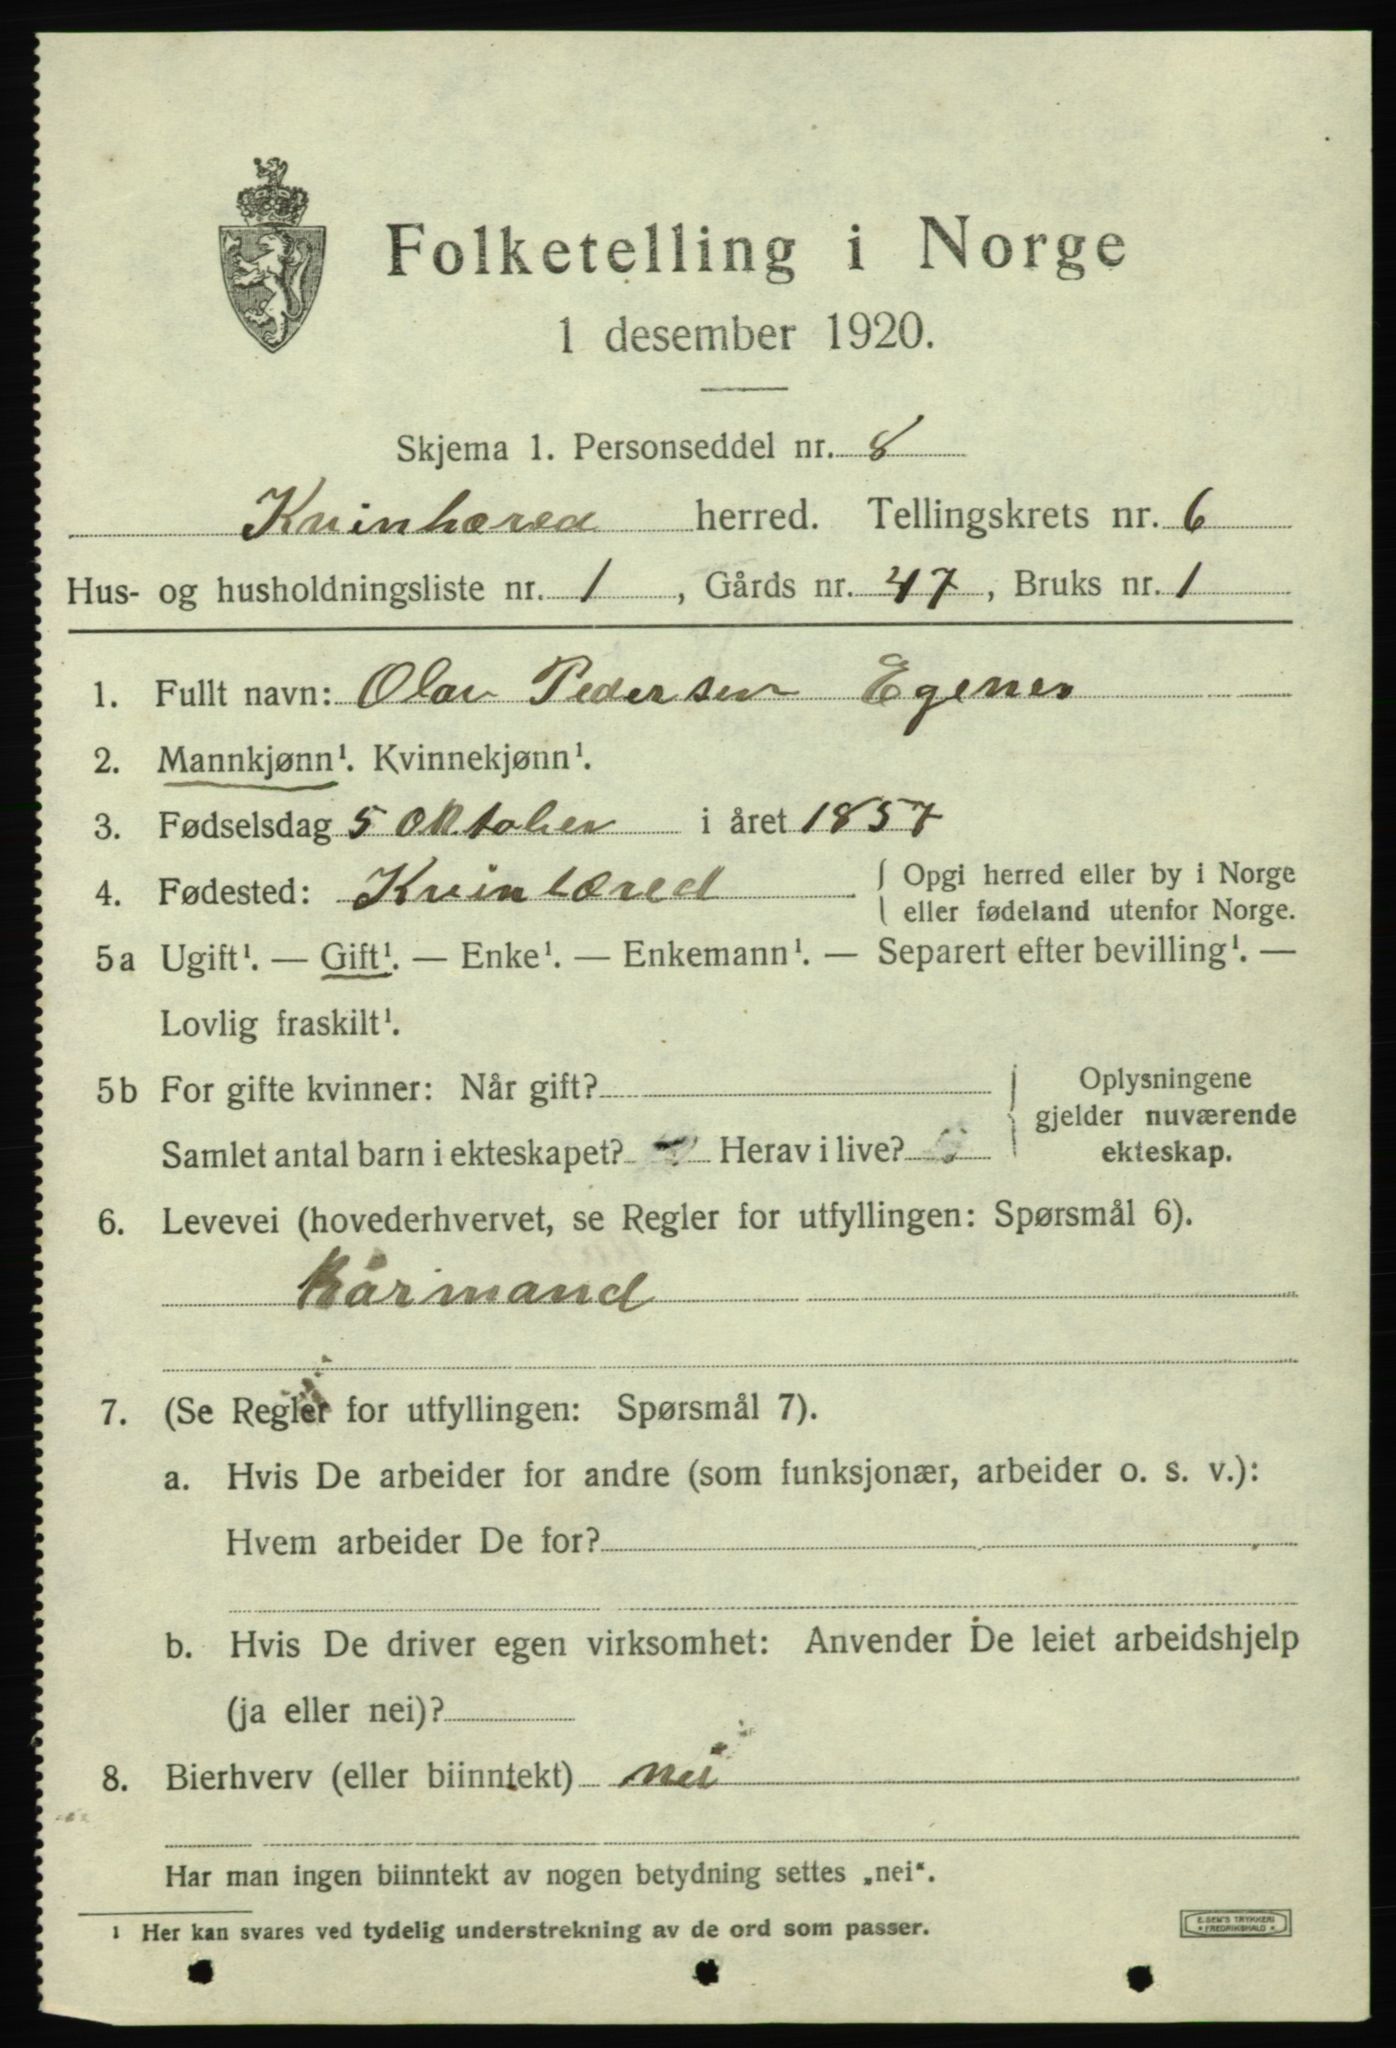 Folketelling i Norge
1 desember 1920.
Skjema 1. Personseddel nr. 8
Kvinhæred herred. Tellingskrets nr. 6
Hus- og husholdningsliste nr. 1, Gårds nr. 47, Bruks nr. 1
1. Fullt navn: Olav Pedersen Egenes
2. Mannkjønn¹. Kvinnekjønn¹.
3. Fødselsdag 5 Oktober i året 1857
4. Fødested: Kvinhæred { Opgi herred eller by i Norge
eller fødeland utenfor Norge.
5a Ugift¹. — Gift¹. — Enke¹. — Enkemann¹. — Separert efter bevilling¹. —
Lovlig fraskilt¹.
5b For gifte kvinner: Når gift? { Oplysningene
gjelder nuværende
ekteskap.
Samlet antal barn i ekteskapet? Herav i live?
6. Levevei (hovederhvervet, se Regler for utfyllingen: Spørsmål 6).
Kårmand
7. (Se Regler for utfyllingen: Spørsmål 7).
a. Hvis De arbeider for andre (som funksjonær, arbeider o. s. v.):
Hvem arbeider De for?
b. Hvis De driver egen virksomhet: Anvender De leiet arbeidshjelp
(ja eller nei)?
8. Bierhverv (eller biinntekt) nei
Har man ingen biinntekt av nogen betydning settes „nei“.
¹ Her kan svares ved tydelig understrekning av de ord som passer.
E. SEM'S TRYKKERI
* FREDRIKSHALD *